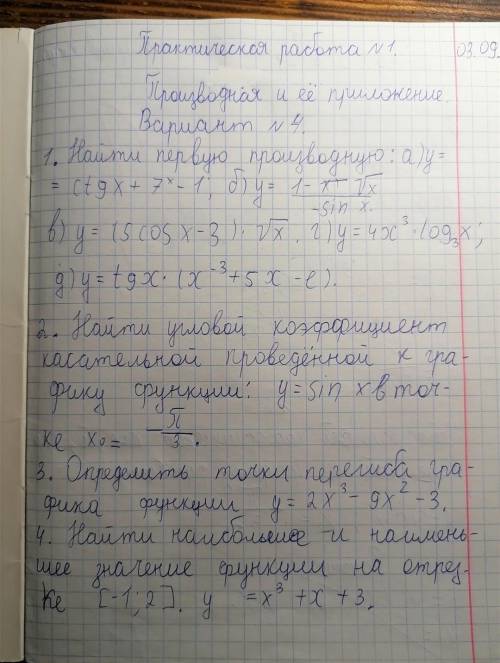 Практическая работа №1. 03.09.
Производная и её приложение.
Вариант №4.
1. Найти первую производную: а) y=
= ctgx + 7ˣ - 1; б) y = (1 - x √x)/(-sin x).
в) y = (5 cos x - 3) · √x. г) y = 4x³ · log₃x;
д) y = tgx · (x⁻³ + 5x - e).
2. Найти угловой коэффициент
касательной проведённой к гра-
фику функции: y = sin x в точ-
ке x₀ = -π/3.
3. Определить точки перегиба гра-
фика функции y = 2x³ - 9x² - 3.
4. Найти наибольшее и наимень-
шее значение функции на отрез-
ке [-1; 2]. y = x³ + x + 3.